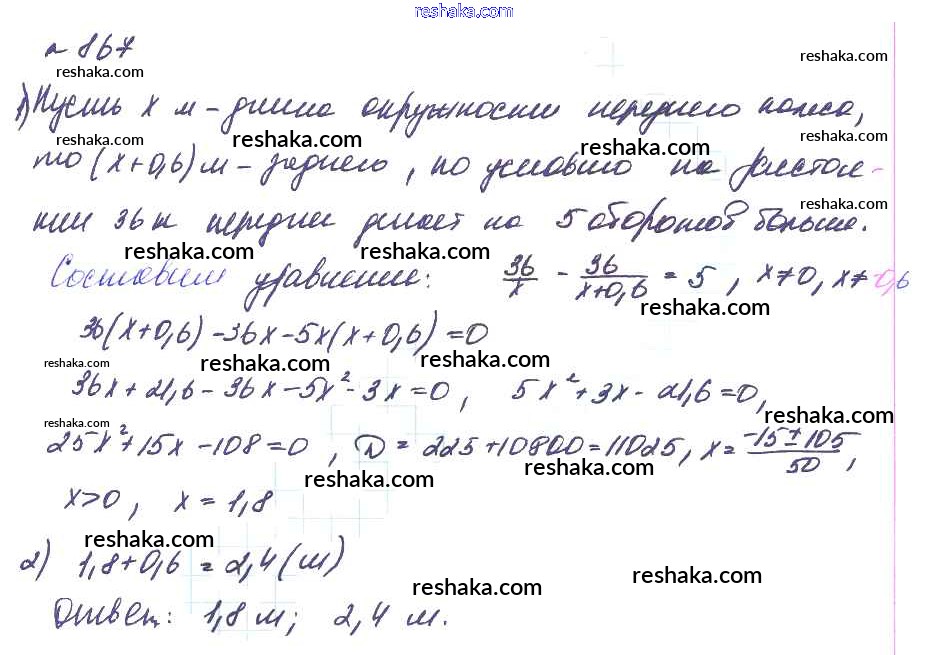 reshaka.com
№ 867
reshaka.com reshaka.com
1) Пусть х м – длина окружности переднего колеса,
reshaka.com reshaka.com reshaka.com reshaka.com
то (х+0,6) м – заднего, по условию на расстоя-
reshaka.com reshaka.com reshaka.com
нии 36 м переднее делает на 5 оборотов больше.
reshaka.com reshaka.com reshaka.com
Составим уравнение: 36/x - 36/(x+0,6) = 5, x≠0, x≠-0,6
reshaka.com
36(x+0,6)-36x-5x(x+0,6)=0
reshaka.com reshaka.com reshaka.com
36x+21,6-36x-5x²-3x=0, 5x²+3x-21,6=0,
reshaka.com reshaka.com
25x²+15x-108=0, D=225+10800=11025, x=(-15±105)/50,
reshaka.com reshaka.com
x>0, x=1,8
reshaka.com
2) 1,8+0,6=2,4(м)
reshaka.com reshaka.com
Ответ: 1,8 м; 2,4 м.
reshaka.com